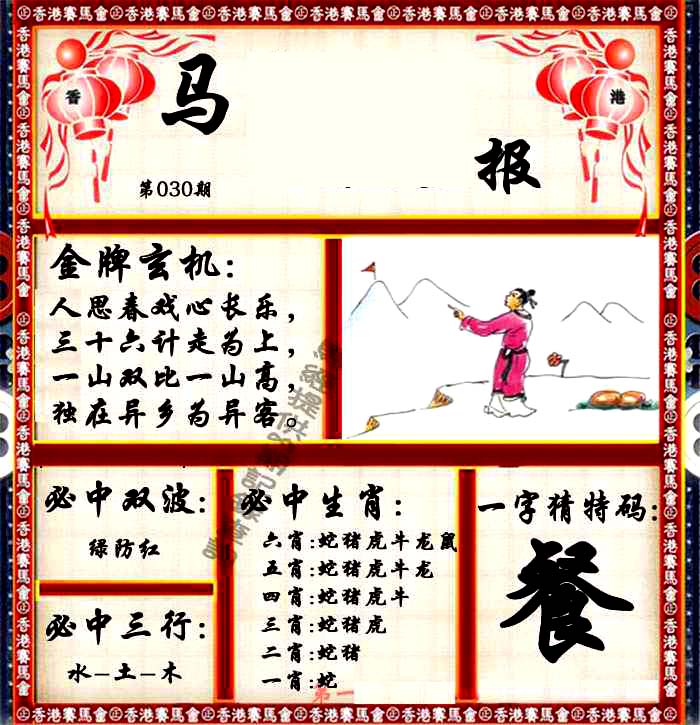 香港賽馬會
香
马
港
报
第030期
金牌玄机:
人思春戏心长乐，
三十六计走为上，
一山双比一山高，
独在异乡为异客。
必中双波:
绿防红
必中三行:
水—土—木
必中生肖:
六肖:蛇猪虎牛龙鼠
五肖:蛇猪虎牛龙
四肖:蛇猪虎牛
三肖:蛇猪虎
二肖:蛇猪
一肖:蛇
第一
一字猜特码:
餐